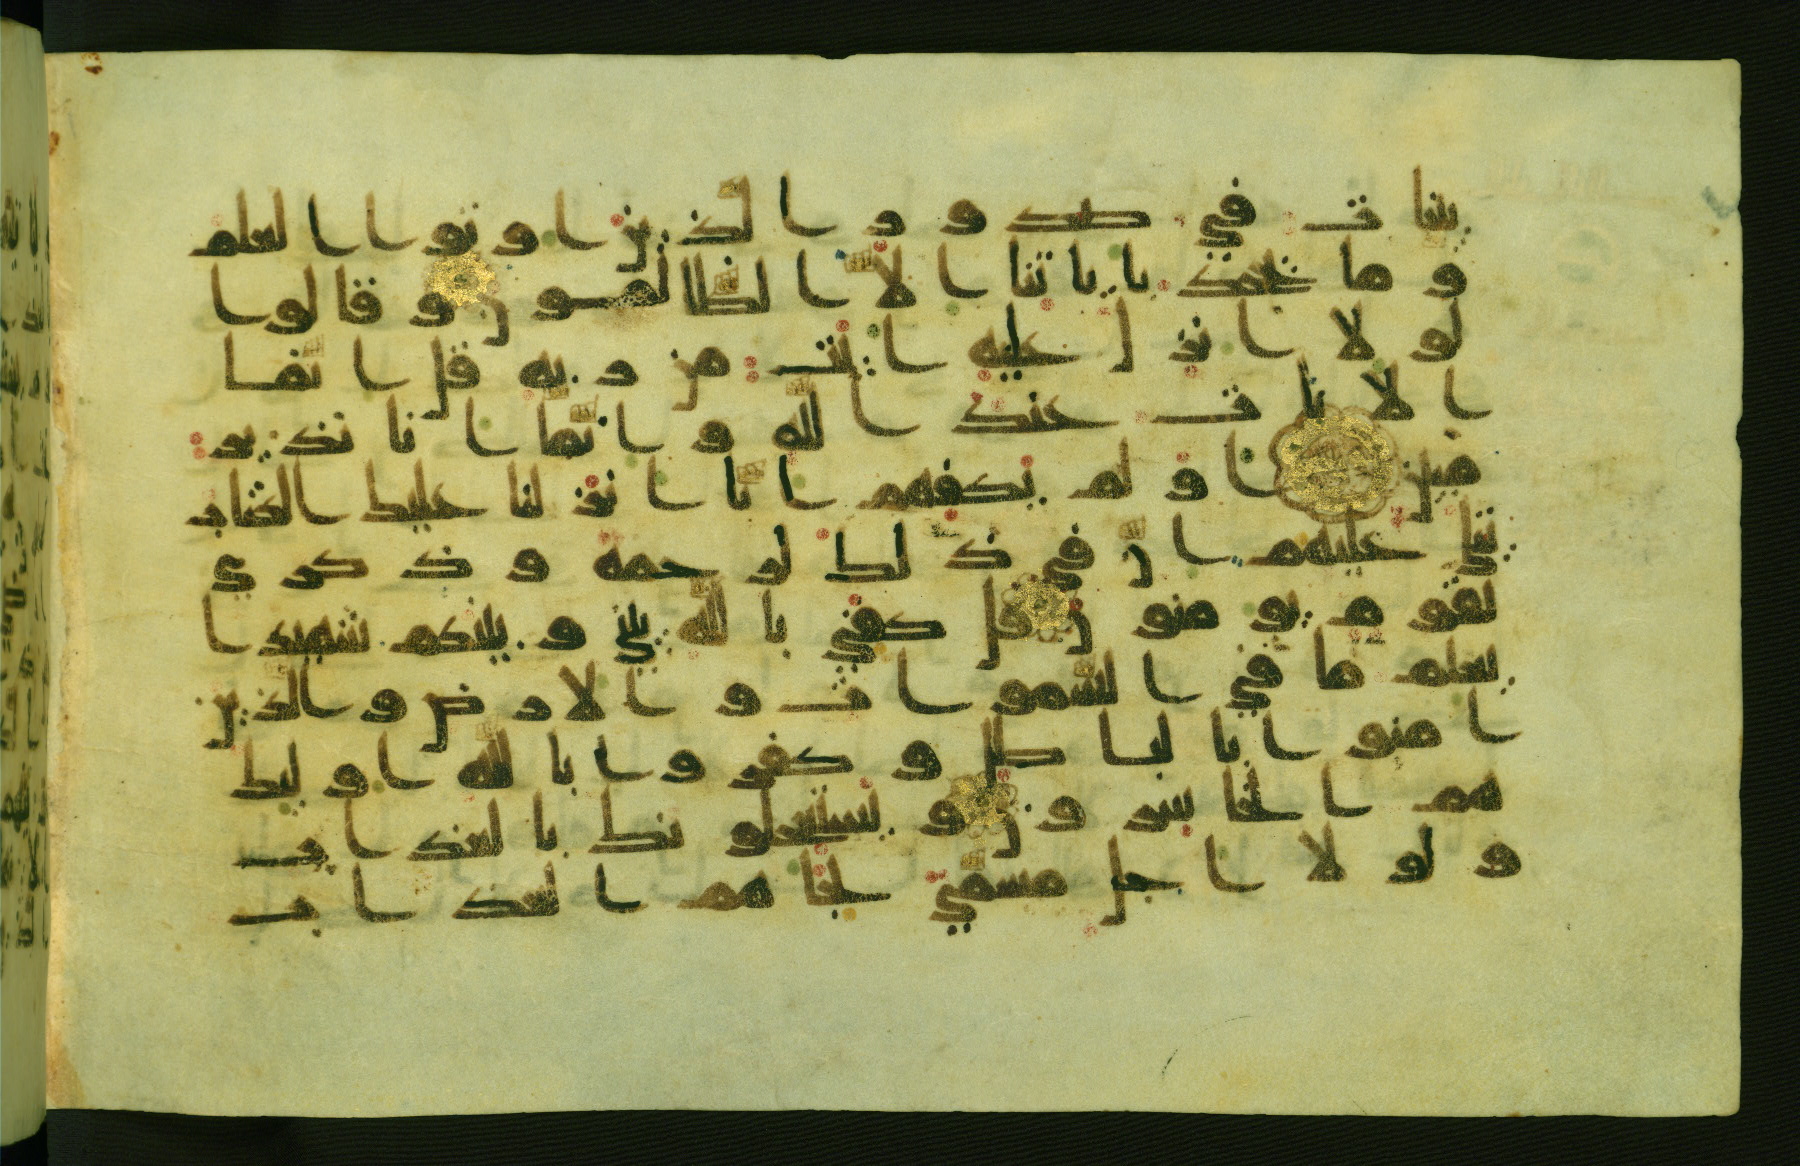 ينات في صدور الذين اوتوا العلم
وما يجحد باياتنا الا الظالمون وقالوا
لولا انزل عليه ايت من ربه قل انما
الايات عند الله وانما انا نذير
مبين اولم يكفهم انا انزلنا عليك الكتاب
يتلى عليهم ان في ذلك لرحمة وذكرى
لقوم يومنون قل كفى بالله بيني وبينكم شهيدا
يعلم ما في السموات والارض والذين
امنوا بالباطل وكفروا بالله اوليك
هم الخاسرون ويستعجلونك بالعذاب
ولولا اجل مسمى لجاهم العذاب